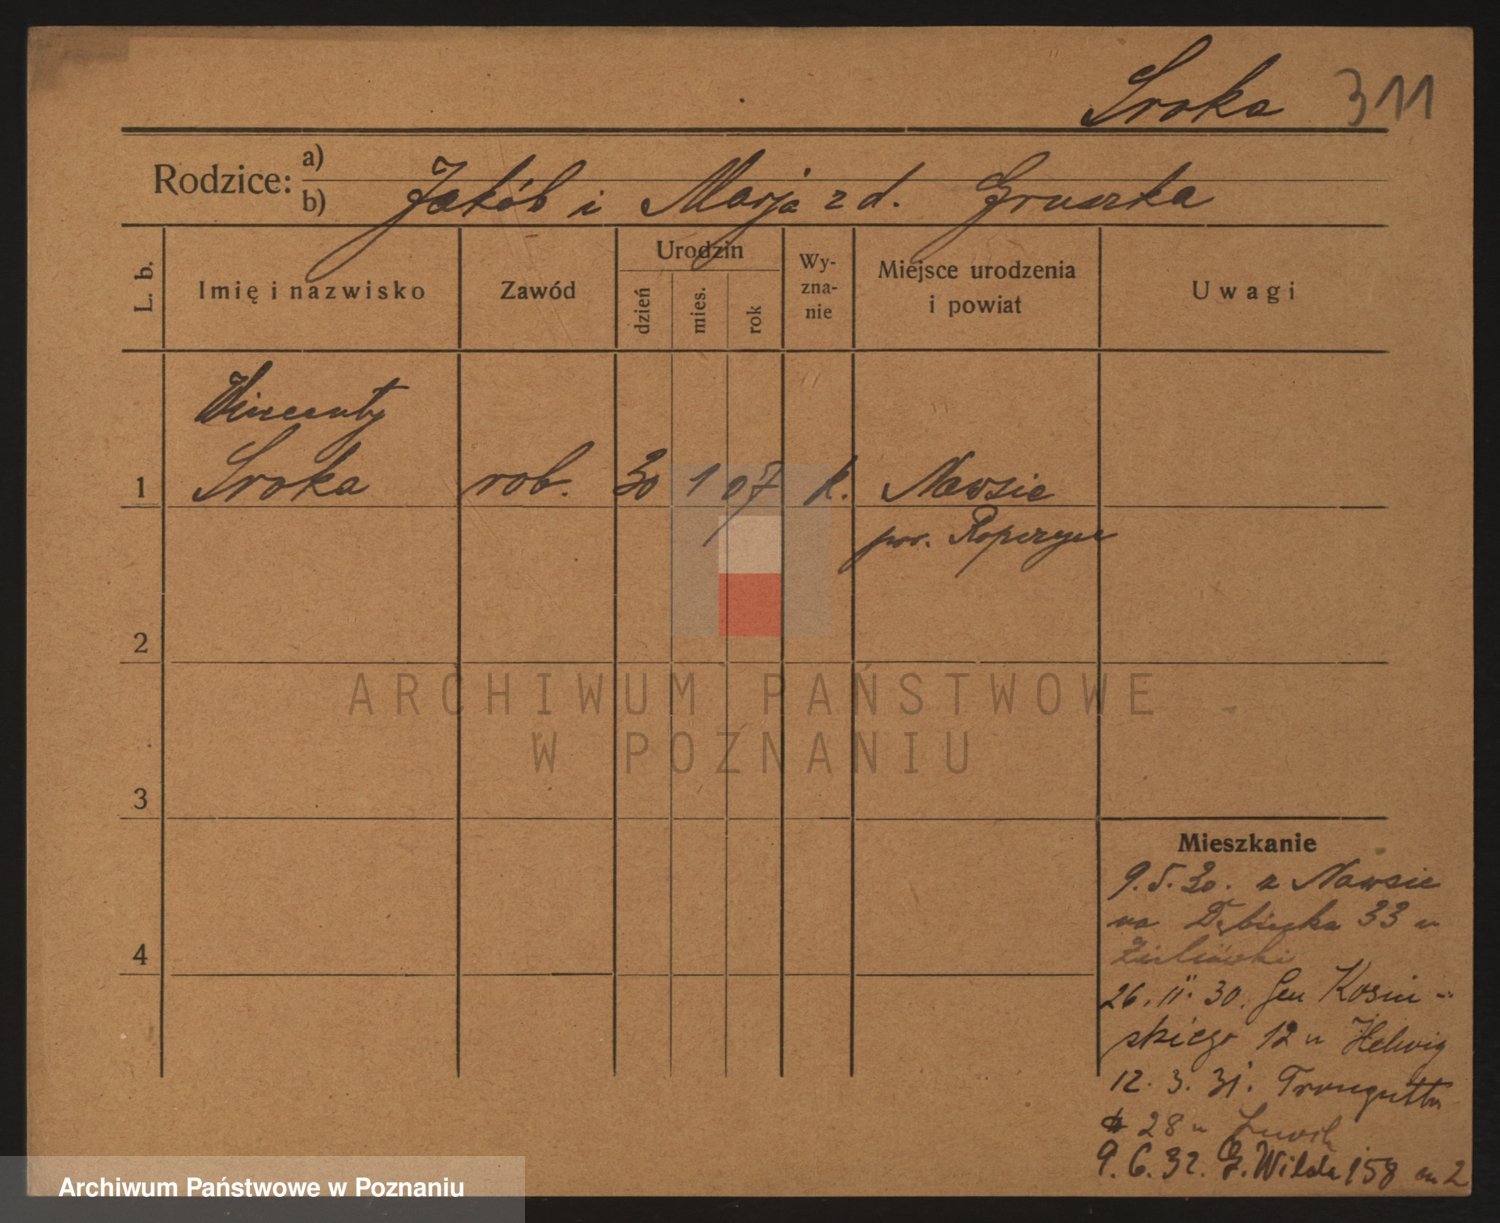 Sroka 311
Rodzice: a)
b) Jakób i Marja z d. Gruszka
L. b.
Imię i nazwisko
Zawód
Urodzin
dzień
mies.
rok
Wy-
zna-
nie
Miejsce urodzenia
i powiat
Uwagi
Wincenty
1 Sroka rob. 30 1 07 k. Nawsie
pow. Ropczyce
2
3
4
ARCHIWUM PAŃSTWOWE
W POZNANIU
Mieszkanie
9.5.30. z Nawsie
na Dębiecka 33 u
26.11.30. Gen Kosiń-
skiego 12 u Helwig
12.3.31. Traugutta
28 u
9.6.32. G. Wilda 158 m 2
Archiwum Państwowe w Poznaniu